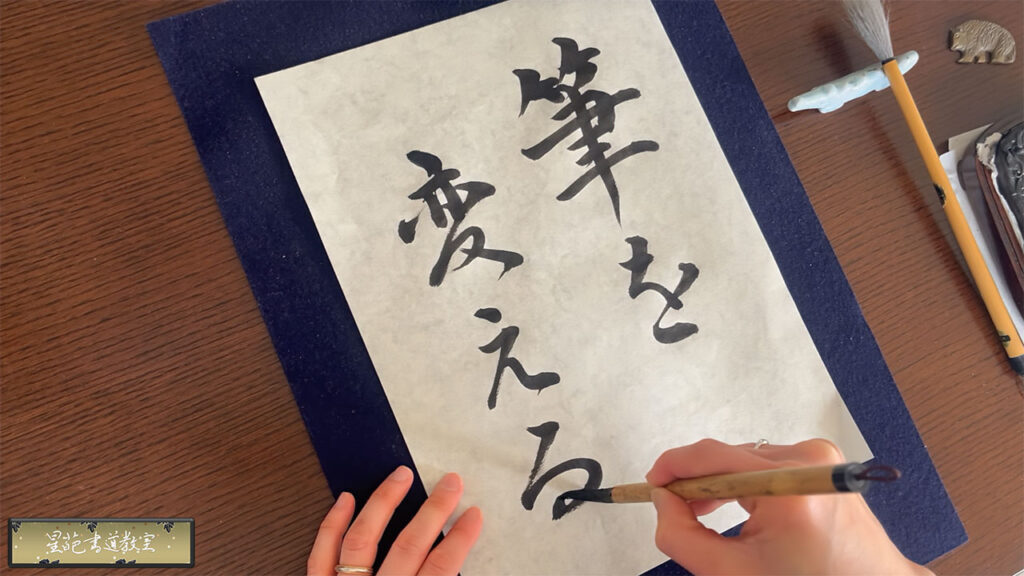 筆を
変える
星葩書道教室